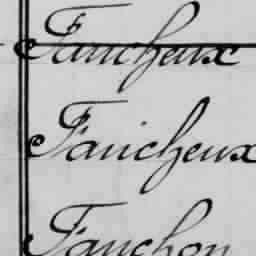 Faucheux
Faucheux
Fauchon